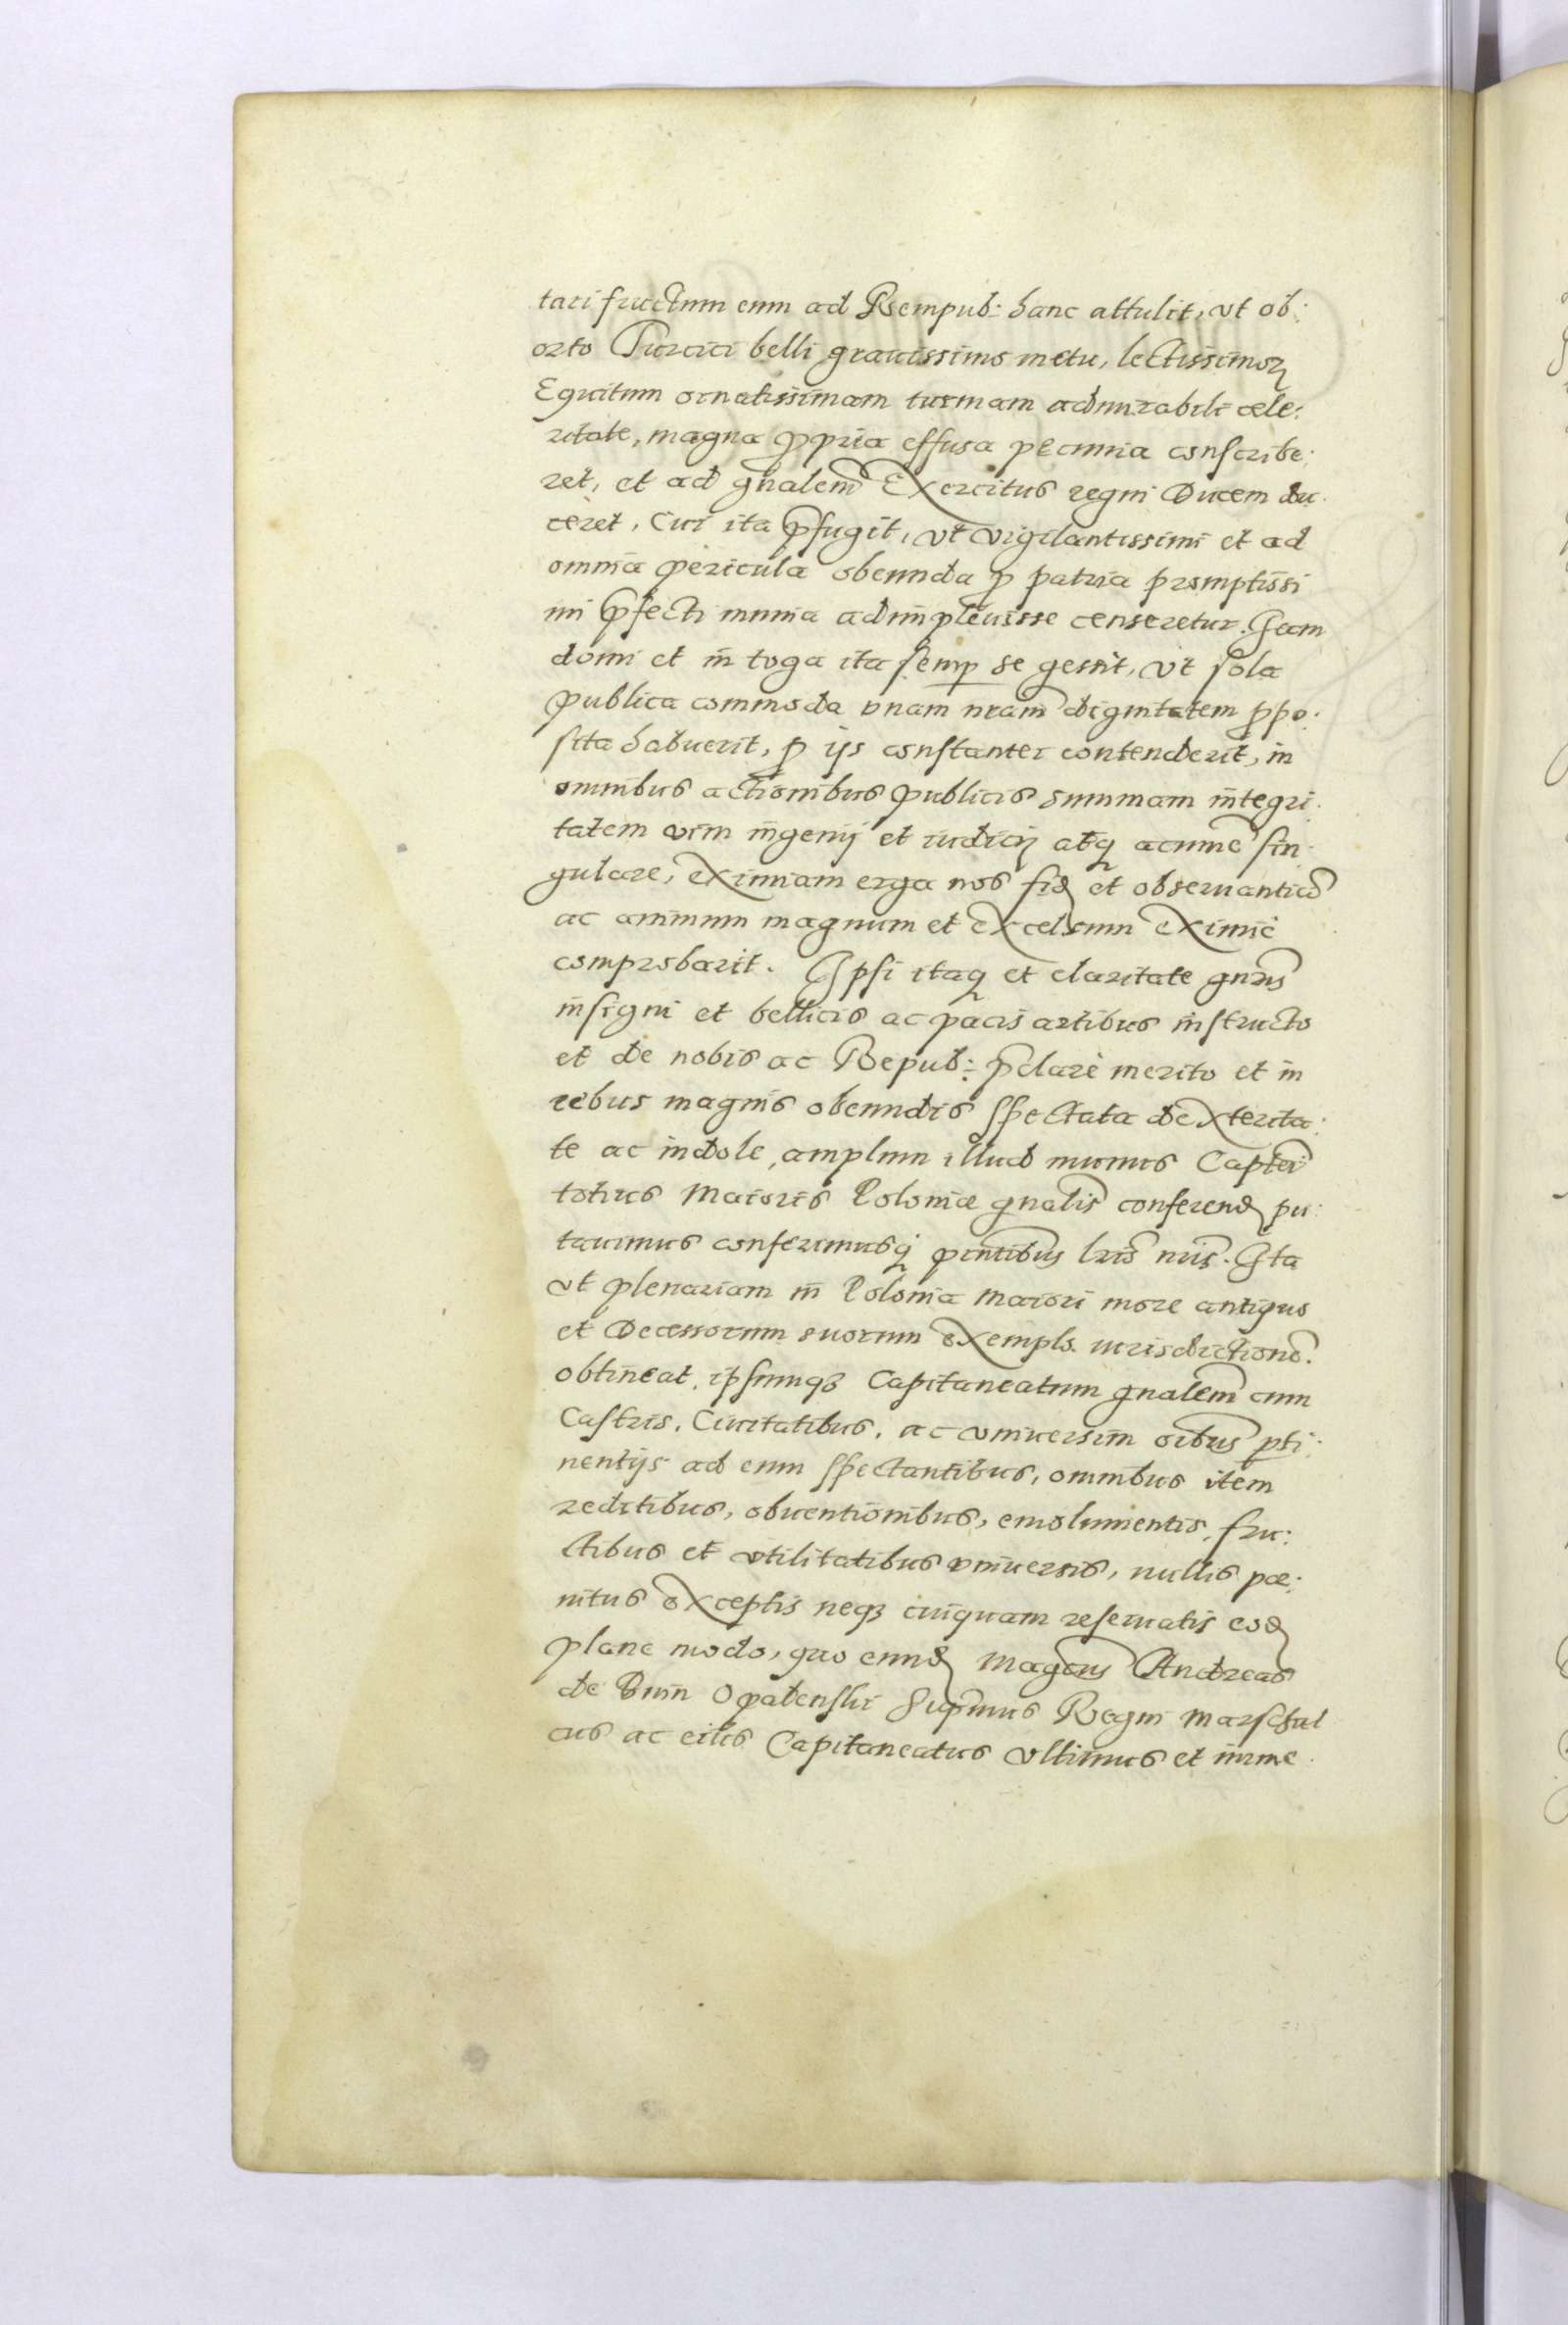 tari fructum eum ad Rempub: hanc attulit, vt ob:
orto Turcici belli grauissimo metu, lectissimoꝝ
Equitum ornatissimam turmam admirabili cele:
ritate, magna ꝓpria effusa pecunia conscribe:
ret, et ad gnalem Exercitus regni Ducem du:
ceret, Cui ita p̄fugit, vt vigilantissimi et ad
omnia pericula obeunda ꝓ patria promptissi
mi p̄fecti munia adimpleuisse censeretur. Jam
domi et in toga ita semꝑ se gessit, vt sola
publica commoda vnam nram dignitatem ꝓpo:
sita habuerit, ꝓ ijs constanter contenderit, in
omnibus actionibus publicis summam integri:
tatem vim ingenij et iudicij atqꝫ acumē sin:
gulare, eximiam erga nos fidē et obseruantiā
ac animum magnum et excelsum eximiè
comprobarit. Ipsi itaqꝫ et claritate gnris
insigni et bellicis ac pacis artibus instructo
et de nobis ac Repub: p̄clarè merito et in
rebus magnis obeundis spectata dexterita:
te ac indole, amplum illud munus Captei
totius Maioris Poloniæ gnalis conferend pu:
tauimus conferimusqꝫ pntibus lris nris. Ita
vt plenariam in Polonia Maiori more antiquo
et Decessorum suorum exemplo iurisdictionē
obtineat, ipsumqꝫ Capitaneatum gnalem cum
Castris, Ciuitatibus, ac vniuersim oibus ꝑti:
nentijs ad eum spectantibus, omnibus item
reditibus, obuentionibus, emolumentis, fru:
ctibus et vtilitatibus vniuersis, nullis pœ:
nitus exceptis neqꝫ cuiquam reseruatis eod
plane modo, quo eund Magcus Andreas
de Bnin Opalenski Supmus Regni Marschal
cus ac eius Capitaneatus vltimus et imme: